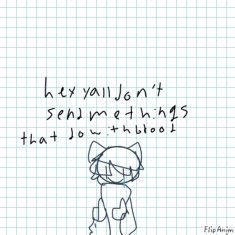 hey yall don't
send me things
that do with blood
FlipAnim